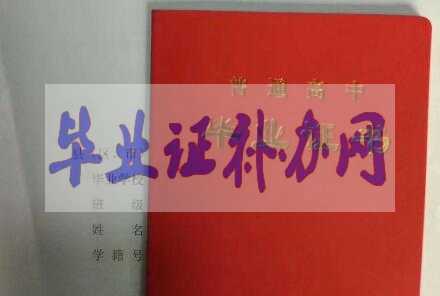 普通高中
毕业证书
毕业证补办网
县 区 市
毕业学校
班 级
姓 名
学籍号